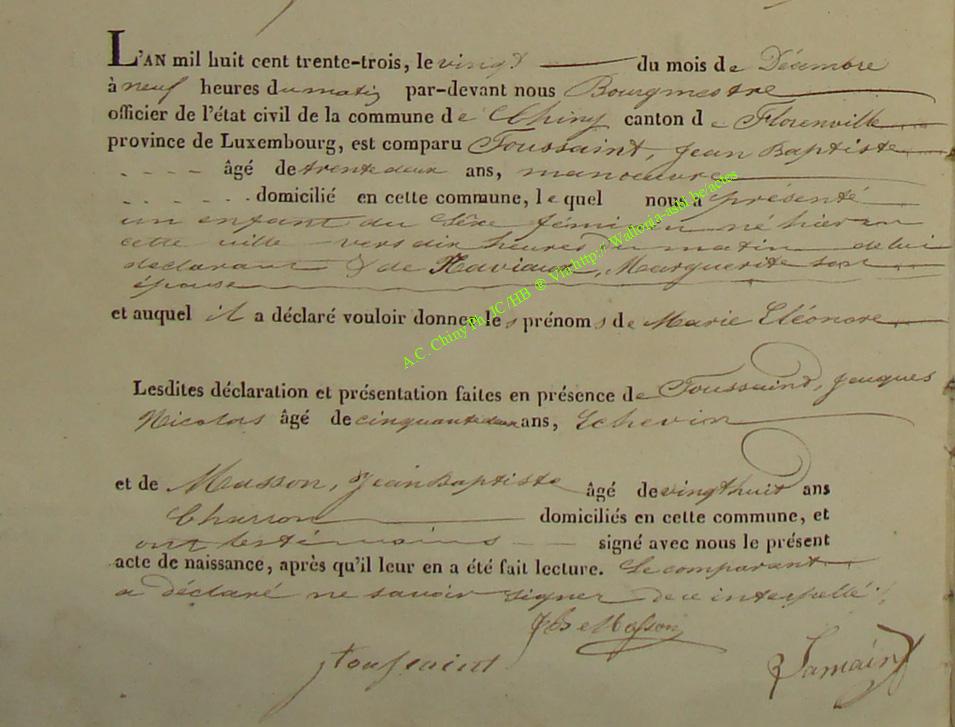 L'AN mil huit cent trente-trois, le vingt du mois de Décembre
à neuf heures du matin par-devant nous Bourgmestre
officier de l'état civil de la commune de Chiny canton de Florenville
province de Luxembourg, est comparu Toussaint, Jean Baptiste
âgé de trente deux ans, manoeuvre
domicilié en cette commune, lequel nous a présenté
un enfant du Sèxe fémi n né hier en
cette ville vers dix heures matin de lui
déclarant & de Naviaux, Marguerite son
épouse
et auquel il a déclaré vouloir donner les prénoms de Marie Eléonore
A.C. Chiny Ph. JC/HB @ Via http:// Wallonia-asbl.be/actes
Lesdites déclaration et présentation faites en présence de Toussaint, Jacques
Nicolas âgé de cinquante deux ans, Echevin
et de Masson, Jean Baptiste âgé de vingt huit ans
Charron domiciliés en cette commune, et
ont les témoins signé avec nous le présent
acte de naissance, après qu'il leur en a été fait lecture. Le comparant
a déclaré ne savoir signer de ce interpellé.
JB Masson
jtoussaint
Jamain